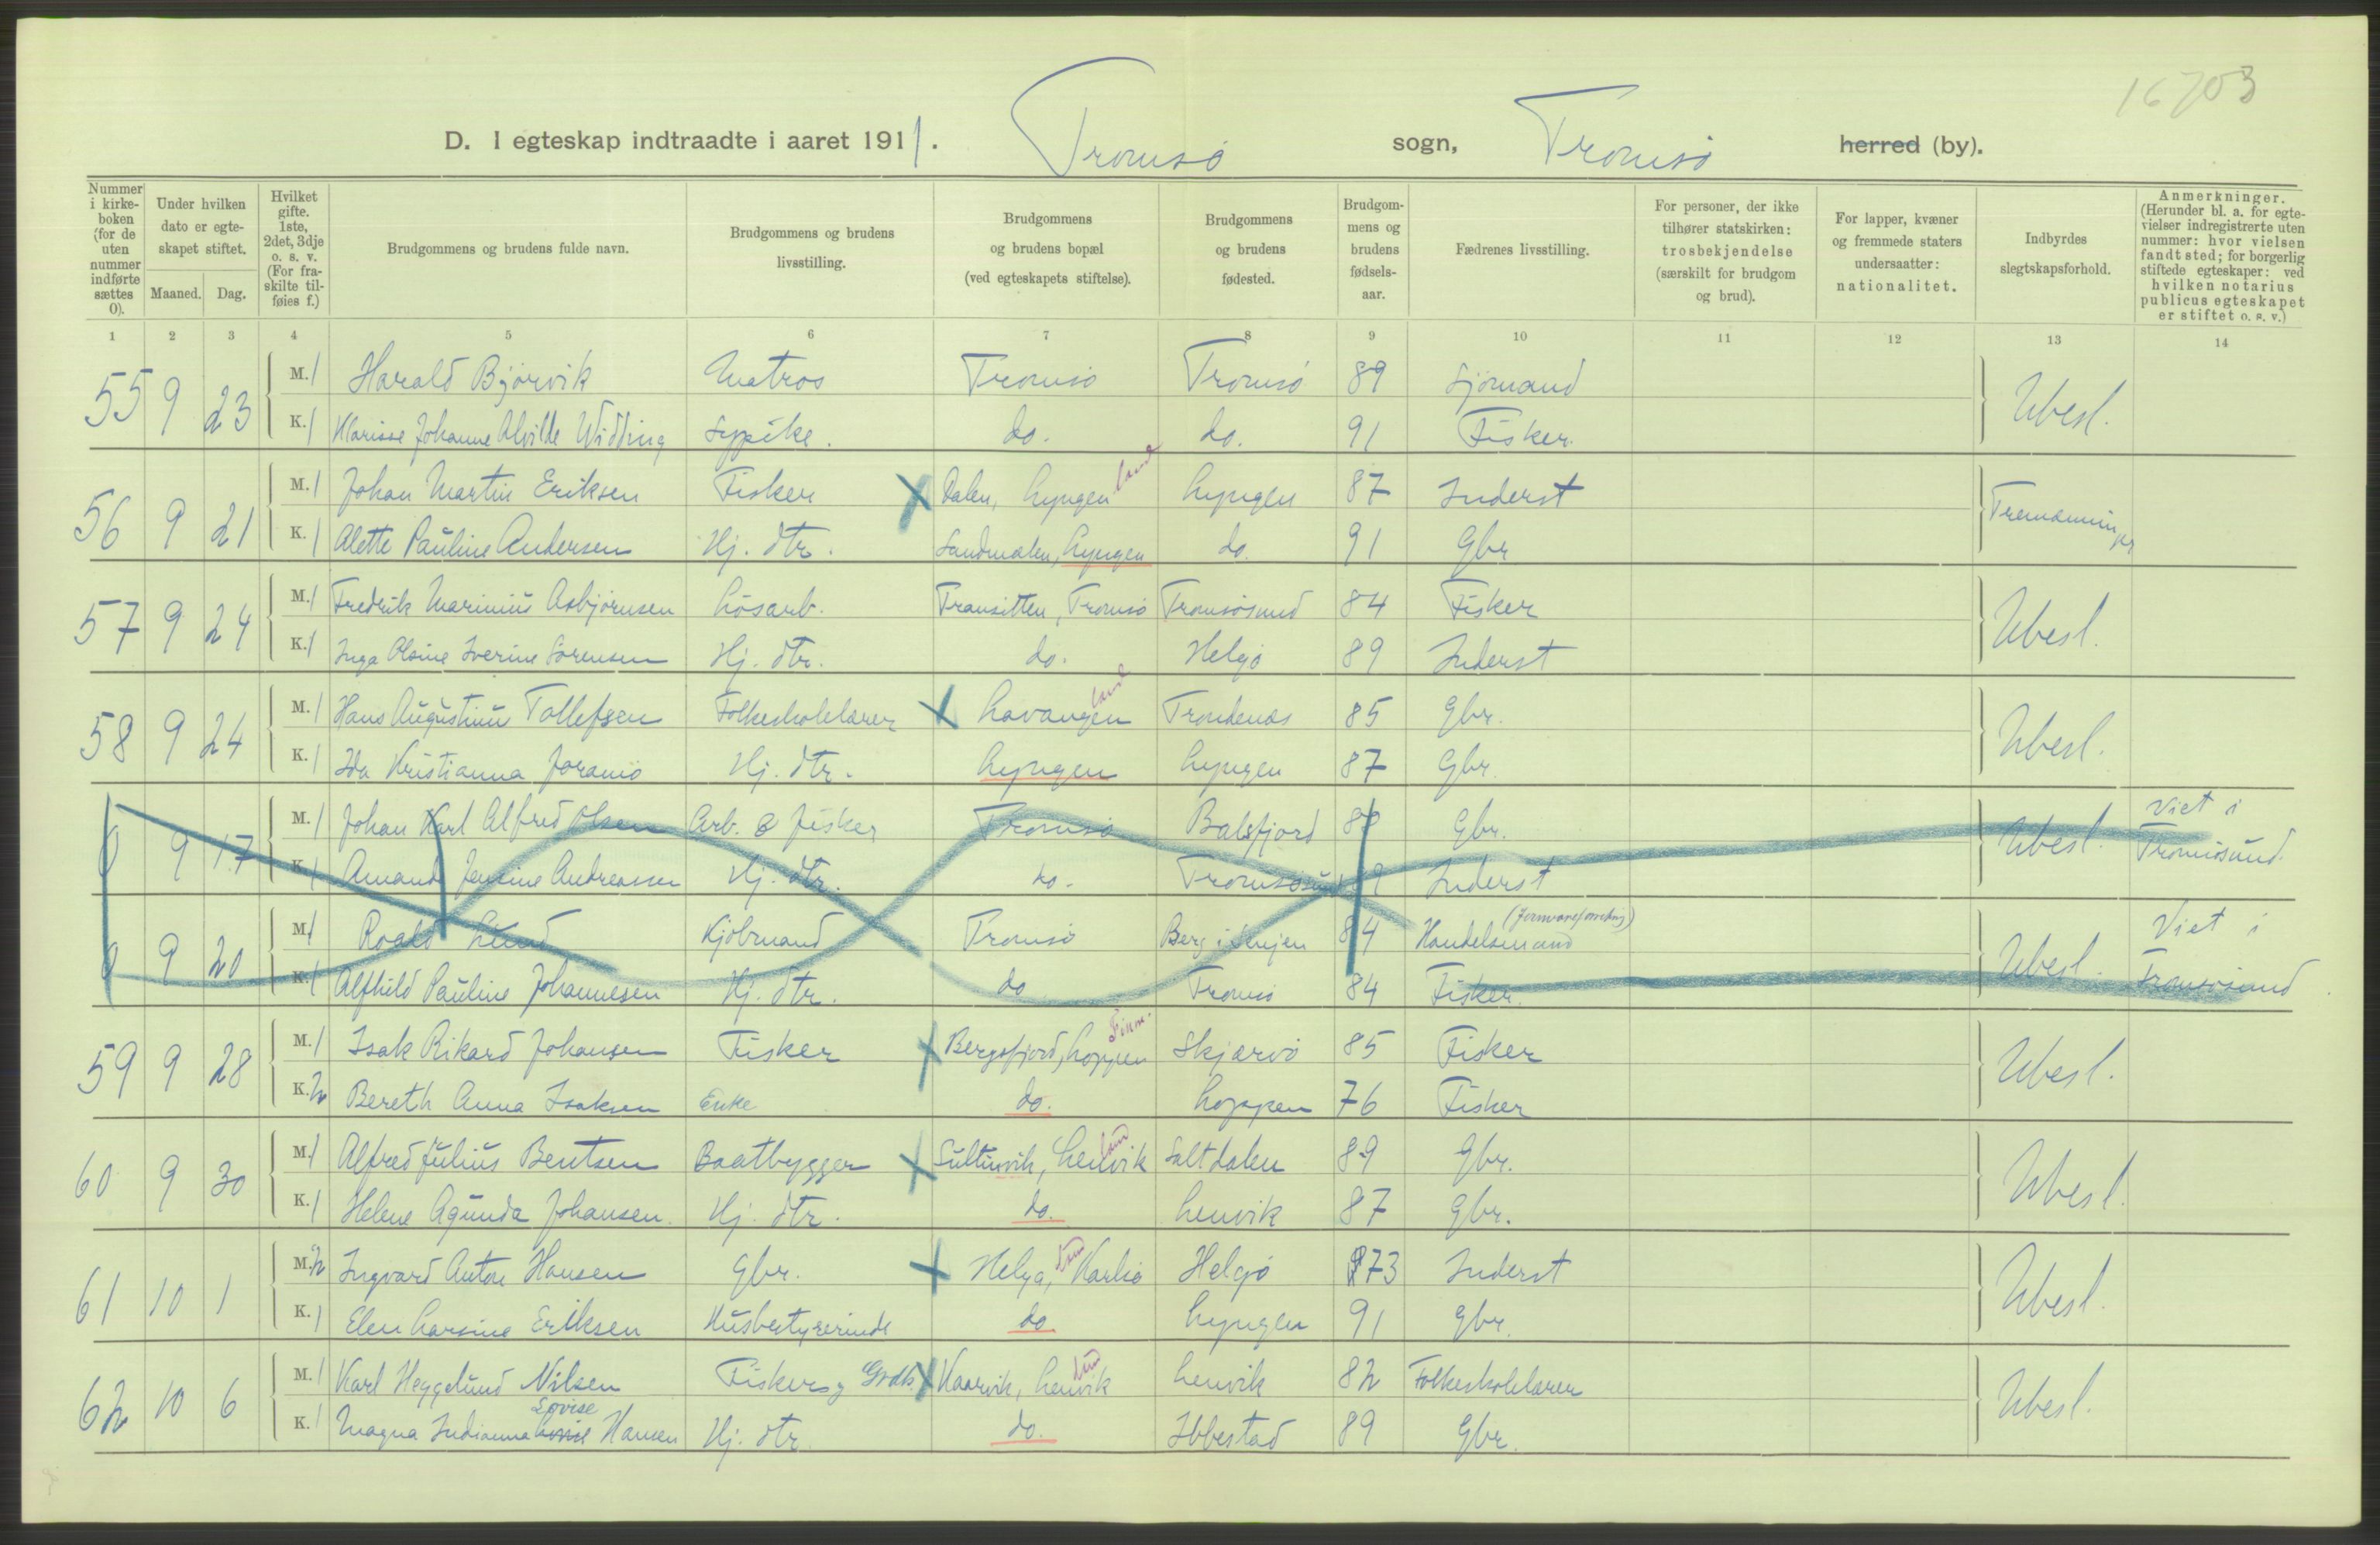 16703
D. I egteskap indtraadte i aaret 1911. Tromsö sogn, Tromsö herred (by).
Nummer i kirkeboken (for de uten nummer indførte sættes 0).
Under hvilken dato er egteskapet stiftet.
Maaned. Dag.
Hvilket gifte. 1ste, 2det, 3dje o. s. v. (For fraskilte tilføies f.)
Brudgommens og brudens fulde navn.
Brudgommens og brudens livsstilling.
Brudgommens og brudens bopæl (ved egteskapets stiftelse).
Brudgommens og brudens fødested.
Brudgommens og brudens fødselsaar.
Fædrenes livsstilling.
For personer, der ikke tilhører statskirken: trosbekjendelse (særskilt for brudgom og brud).
For lapper, kvæner og fremmede staters undersaatter: nationalitet.
Indbyrdes slegtskapsforhold.
Anmerkninger. (Herunder bl. a. for egtevielser indregistrerte uten nummer: hvor vielsen fandt sted; for borgerlig stiftede egteskaper: ved hvilken notarius publicus egteskapet er stiftet o. s. v.)
1 2 3 4 5 6 7 8 9 10 11 12 13 14
55 9 23 M. 1 Harald Björvik Matros Tromsö Tromsö 89 Sjömand Ubesl.
K. 1 Klarisse Johanne Alvilde Widding Sypike. do. do. 91 Fisker.
56 9 21 M. 1 Johan Martin Eriksen Fisker Dalen, Lyngen land Lyngen 87 Inderst Tremænninger
K. 1 Alette Pauline Andersen Hj. dtr. Sandmælen, Lyngen do. 91 Gbr
57 9 24 M. 1 Fredrik Marinius Asbjörnsen Lösarb. Transitten, Tromsö Tromsösund 84 Fisker Ubesl.
K. 1 Inga Olsine Iverine Sörensen Hj. dtr. do. Helgö 89 Inderst
58 9 24 M. 1 Hans Augustinus Tollefsen Folkeskolelærer Lavangen land Trondenæs 85 Gbr. Ubesl.
K. 1 Ida Kristianna Joramo Hj. dtr. Lyngen Lyngen 87 Gbr.
0 9 17 M. 1 Johan Karl Alfred Olsen Arb. & Fisker Tromsö Balsfjord 8 Gbr. Ubesl. Viet i Tromsösund.
K. 1 Amanda Jensine Andreassen Hj. dtr. do. Tromsösund 9 Inderst
0 9 20 M. 1 Roald Lund Kjöbmand Tromsö Berg i Senjen 84 Handelsmand (Jernvareforretning) Ubesl. Viet i Tromsösund
K. 1 Alfhild Pauline Johannesen Hj. dtr. do Tromsö 84 Fisker.
59 9 28 M. 1 Isak Rikard Johansen Fisker Bergsfjord, Loppen Finm. Skjærvö 85 Fisker Ubesl.
K. 2 Bereth Anna Isaksen Enke do. Loppen 76 Fisker
60 9 30 M. 1 Alfred Julius Bentsen Baatbygger Sultinvik, Lenvik land Saltdalen 89 Gbr. Ubesl.
K. 1 Helene Agunda Johansen. Hj. dtr. do. Lenvik 87 Gbr.
61 10 1 M. 2 Ingvard Anton Hansen Gbr. Helgö, Karlsö land Helgö 73 Inderst Ubesl.
K. 1 Elen Larsine Eriksen Husbestyrerinde do Lyngen 91 Gbr.
62 10 6 M. 1 Karl Heggelund Nilsen Fisker og Grdb. Kaarvik, Lenvik land Lenvik 82 Folkeskolelærer Ubesl.
K. 1 Magna Indianna Lovise Hansen Hj. dtr do. Ibbestad 89 Gbr.